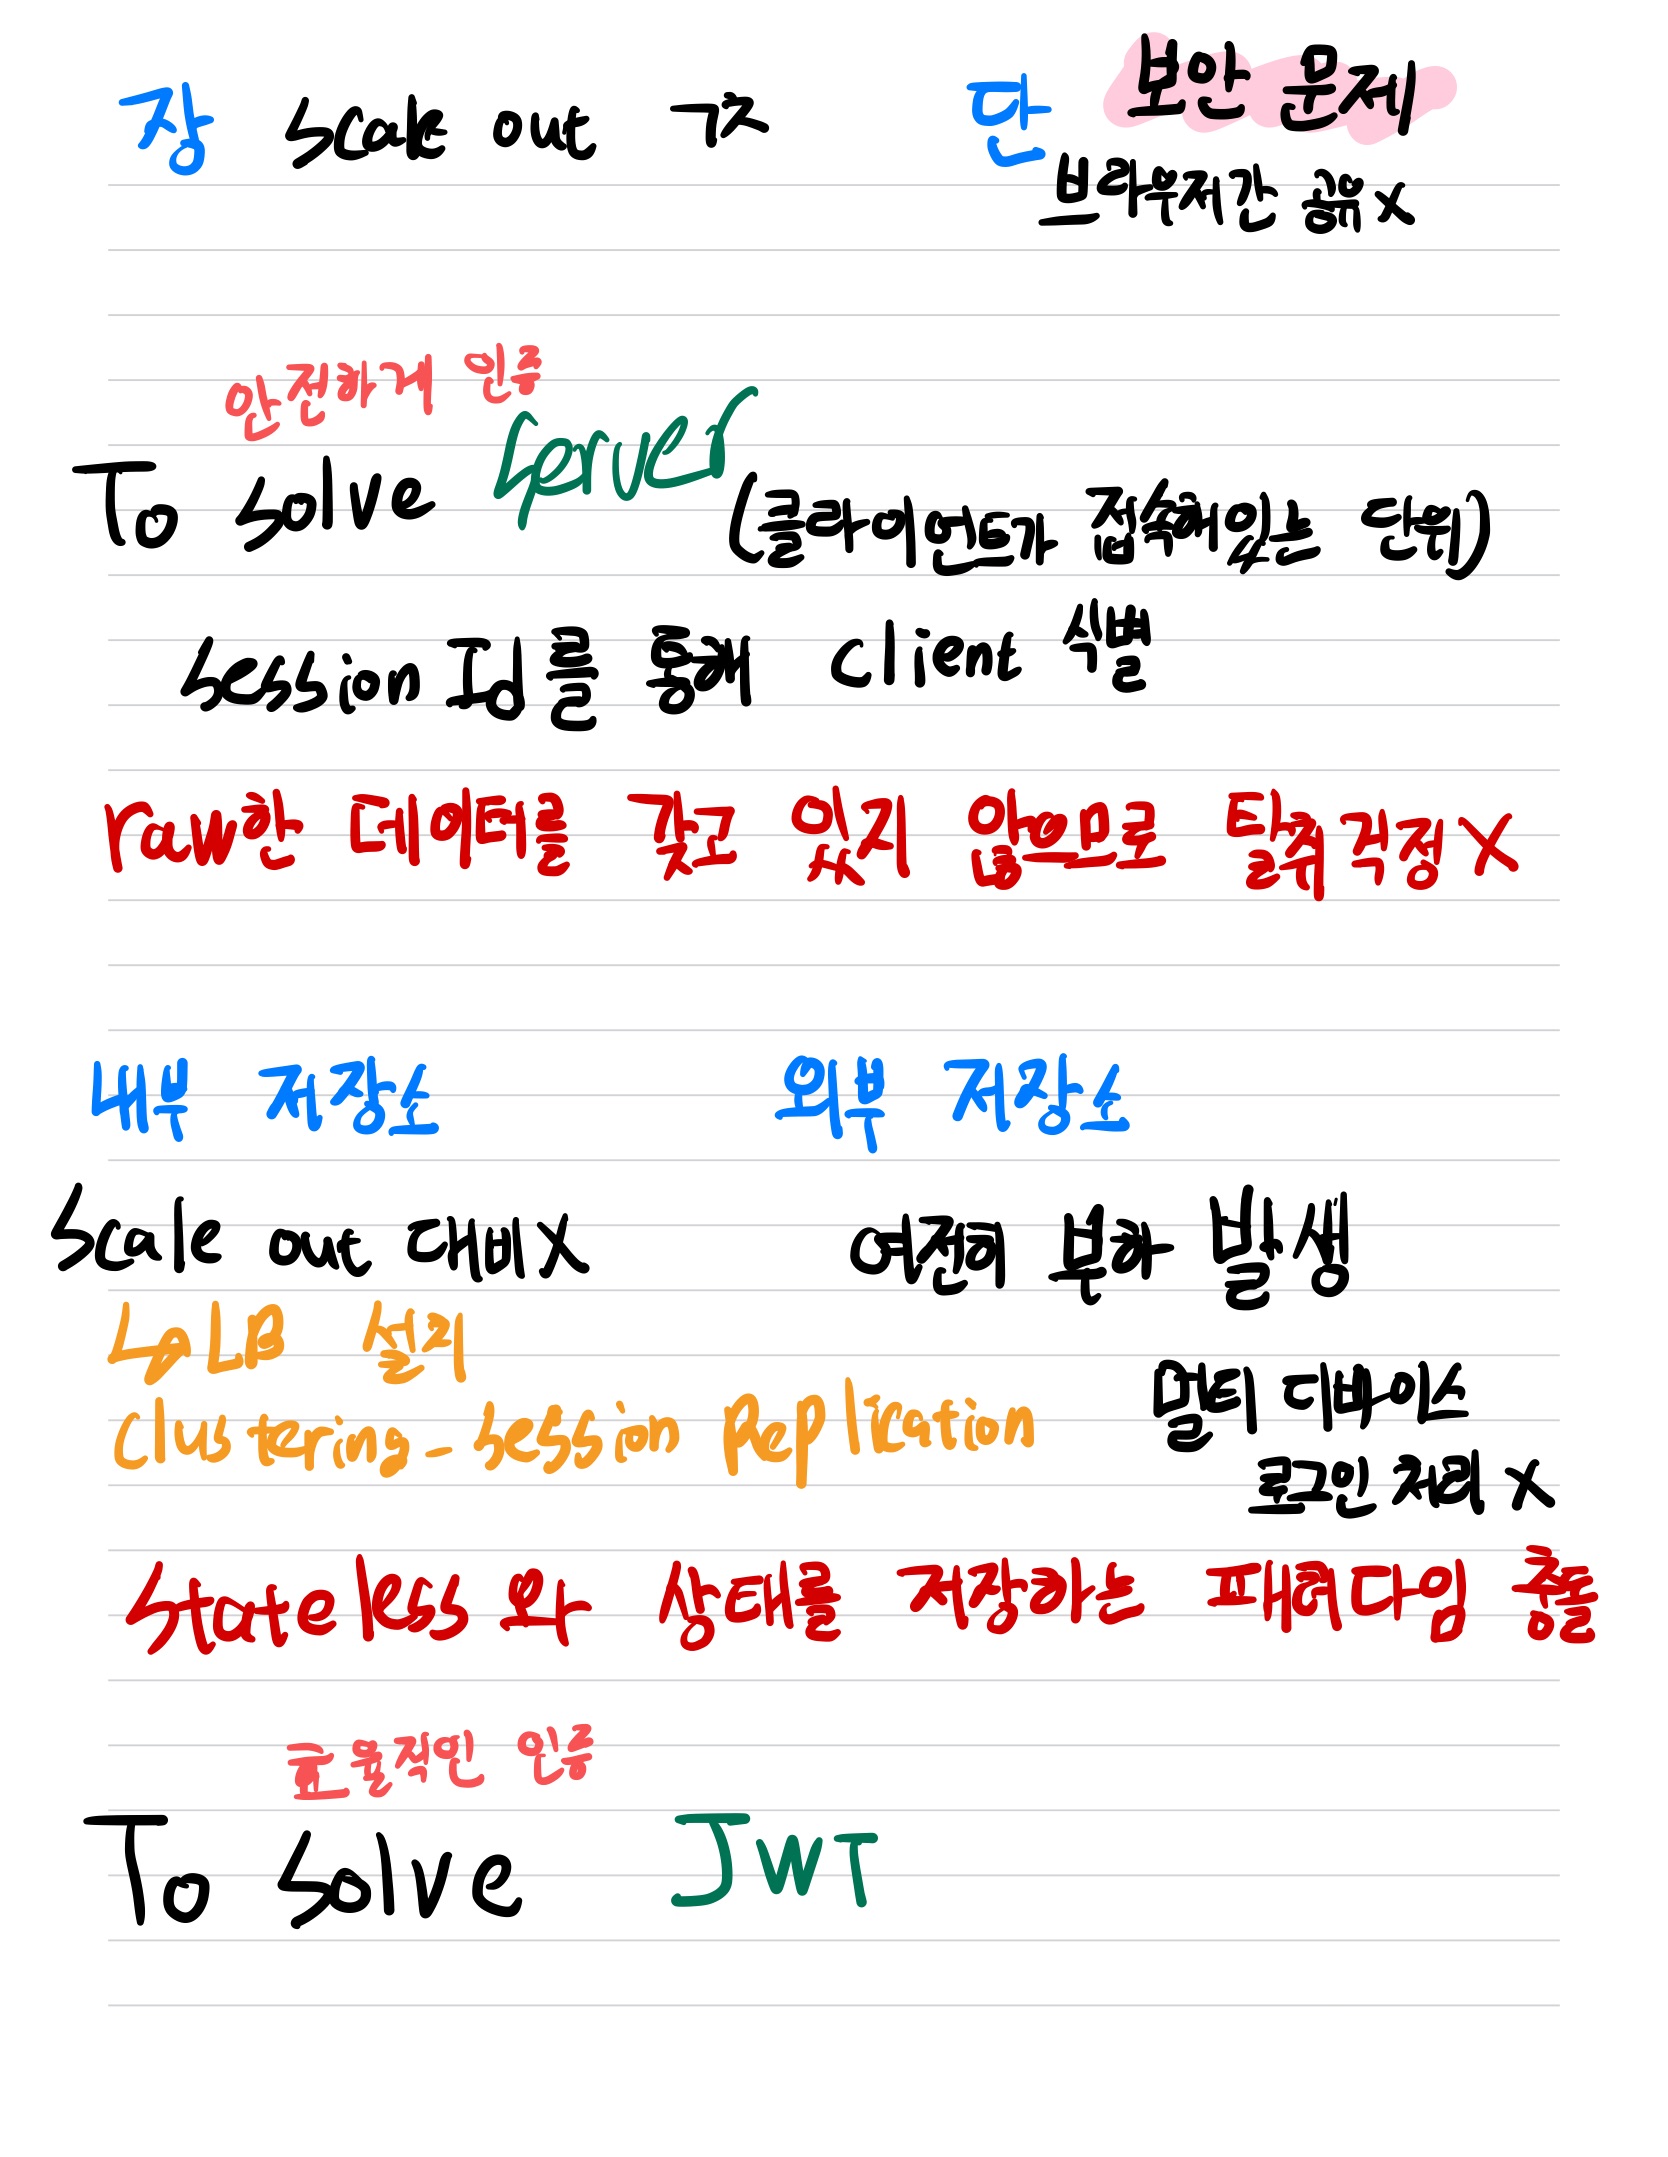 장 Scale out 구조 단 보안 문제
브라우저간 공유x
안전하게 인증
To solve Server
(클라이언트가 접속해있는 단위)
Session Id를 통해 Client 식별
raw한 데이터를 갖고 있지 않으므로 탈취걱정X
내부 저장소 외부 저장소
Scale out 대비X 여전히 부하 발생
LB 설정
Clustering - Session Replication
멀티 디바이스
로그인 처리 X
Stateless와 상태를 저장하는 패러다임 충돌
효율적인 인증
To solve JWT